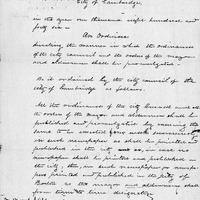 City of Cambridge.
in the year one thousand eight hundred and
forty six —
An Ordinance
directing the manner in which the ordinances
of the city council and the orders of the mayor
and aldermen shall be promulgated.
Be it ordained by the city council of the
city of Cambridge as follows.
All the ordinances of the city council and all
the orders of the mayor and aldermen shall be
published and promulgated by causing the
same to be inserted
in such newspaper as shall be printed and
published in the city, and so, in case no
newspaper shall be printed and published in
the city, then, in such newspaper or newspa-
pers printed and published in the city of
Boston as the mayor and aldermen shall
from time to time designate